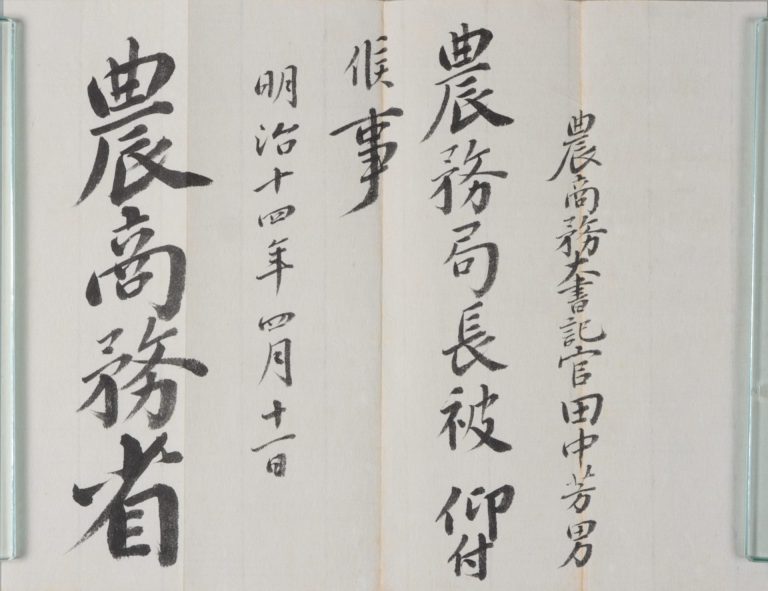 農商務大書記官田中芳男
農務局長被 仰付
候事
明治十四年四月十一日
農商務省